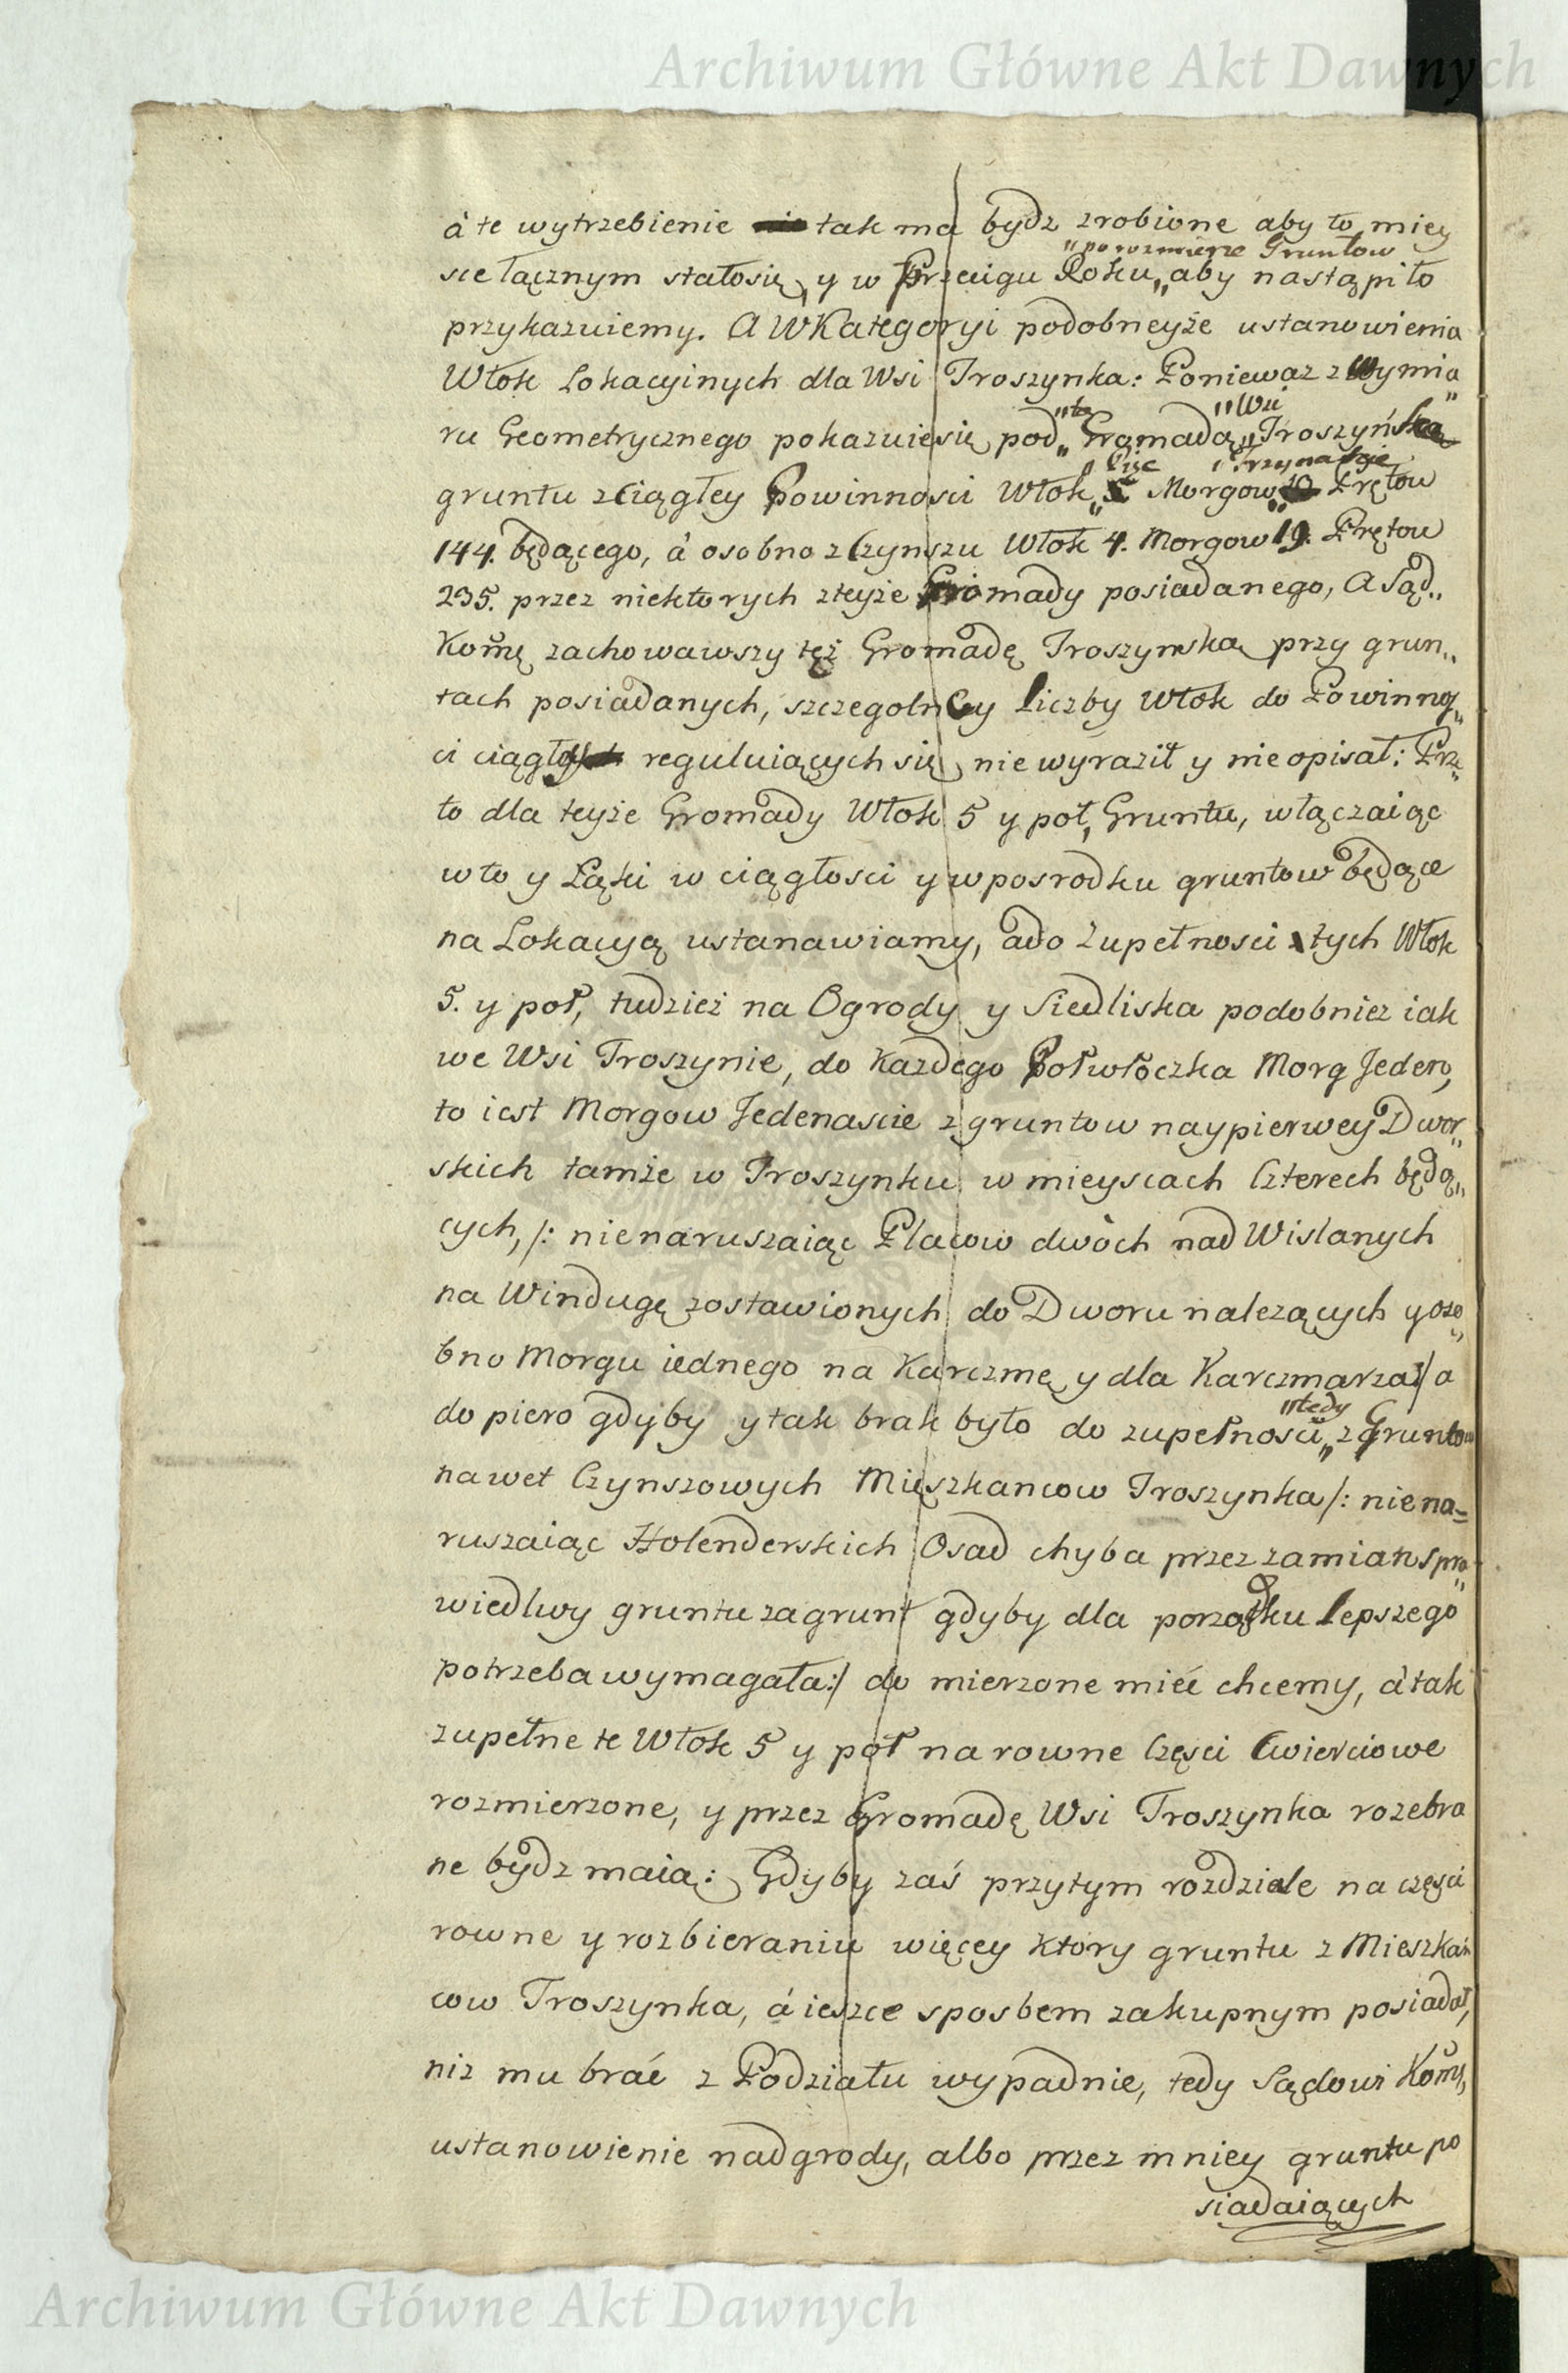 Archiwum Główne Akt Dawnych
à te wytrzebienie nie tak ma bydz zrobione aby to miey
„po rozmierze Gruntow
sce łącznym stałosię, y w Przeciągu Roku„ aby nastąpiło
przykazuiemy. A W Kategoryi podobneyże ustanowienia
Włok Lokacyinych dla Wsi Troszynka: Poniewaz z Wymia„
„tą „Wsi
ru Geometrycznego pokazuiesię pod„ Gromadą„ Troszyńską
„Pięc „Trzynaście
gruntu zciągłey Powinnosci Włok„ 5 Morgow„ 19 Prętow
144. będącego, à osobno z Czynszu Włok 4. Morgow 19. Prętow
235. przez niektorych zteyże Gromady posiadanego, A Sąd„
Kom̃ę zachowawszy tęż Gromadę Troszynską przy grun„
tach posiadanych, szczegolney liczby Włok do Powinnoś„
ci ciągłey reguluiących się nie wyraził y nie opisał: Prze„
to dla teyże Gromady Włok 5 y poł, Gruntu, włączaiąc
w to y Łąki w ciągłosci y w posrodku gruntow będące
na Lokacyą ustanawiamy, a do Zupełnosci tych Włok
5. y poł, tudzież na Ogrody y Siedliska podobniez iak
we Wsi Troszynie, do Każdego Połwłoczka Morg Jeden,
to iest Morgow Jedenascie z gruntow naypierwey Dwor„
skich tamże w Troszynku w mieyscach Czterech będą„
cych, /: nienaruszaiąc Placow dwòch nad Wislanych
na Windugę zostawionych do Dworu nalezących y oso„
bno Morgu iednego na Karczmę y dla Karczmarza :/ a
„tedy
do piero gdyby y tak brak było do zupełnosci„ z Gruntow
nawet Czynszowych Mięszkancow Troszynka /: niena=
ruszaiąc Holenderskich Osad chyba przez zamian spra„
wiedlwy gruntu za grunt gdyby dla porządku lepszego
potrzeba wymagała :/ do mierzone mieć chcemy, à tak
zupełne te Włok 5 y poł na rowne Częsci Cwierciowe
rozmierzone, y przez Gromadę Wsi Troszynka rozebra
ne bydz maią: Gdyby zaś przytym rozdziale na częsci
rowne y rozbieraniu więcey ktory gruntu z Mieszkań
cow Troszynka, á ieszce sposbem zakupnym posiadał,
niz mu brać z Podziału wypadnie, tedy Sądowi Kom̃y,
ustanowienie nadgrody, albo przez mniey gruntu po
siadaiących
Archiwum Główne Akt Dawnych